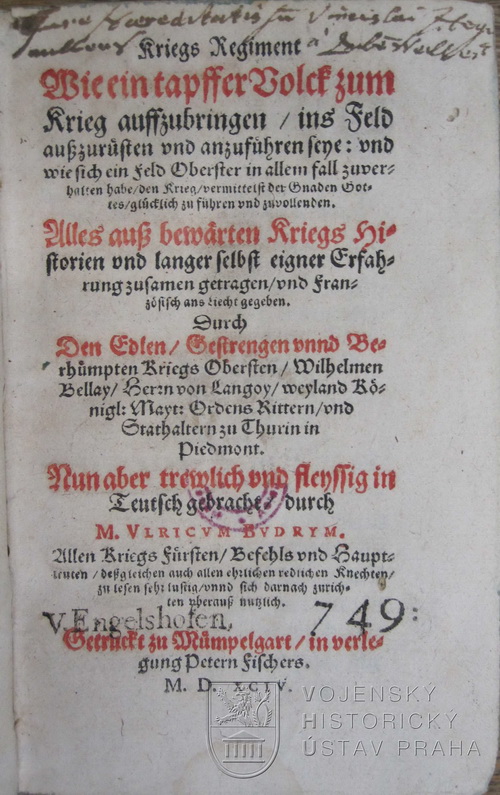 Jure Hæreditatis
Kriegs Regiment
Wie ein tapffer Volck zum
Krieg auffzubringen / ins Feld
außzurüsten vnd anzuführen seye: vnd
wie sich ein Feld Oberster in allem fall zuver-
halten habe / den Krieg / vermittelst der Gnaden Got-
tes / glücklich zu führen vnd zuvollenden.
Alles auß bewärten Kriegs Hi-
storien vnd langer selbst eigner Erfah-
rung zusamen getragen / vnd Fran-
zösisch ans Liecht gegeben.
Durch
Den Edlen / Gestrengen vnnd Be-
rhümpten Kriegs Obersten / Wilhelmen
Bellay / Herrn von Langoy / weyland Kö-
nigl: Mayt: Ordens Rittern / vnd
Stathaltern zu Thurin in
Piedmont.
Nun aber trewlich vnd fleyssig in
Teutsch gebracht / durch
M. VLRICVM BVDRYM.
Allen Kriegs Fürsten / Befehls vnd Haupt-
leuten / deßgleichen auch allen ehrlichen redlichen Knechten /
zu lesen sehr lustig / vnnd sich darnach zurich-
ten vberauß nutzlich.
V. Engelshofen, 749:
Getruckt zu Mümpelgart / in verle-
gung Petern Fischers.
M. D. XCIV.
VOJENSKÝ
HISTORICKÝ
ÚSTAV PRAHA